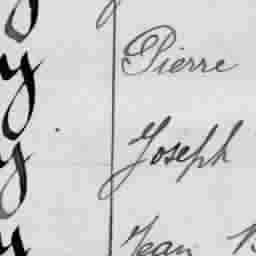 Pierre
Joseph
Jean